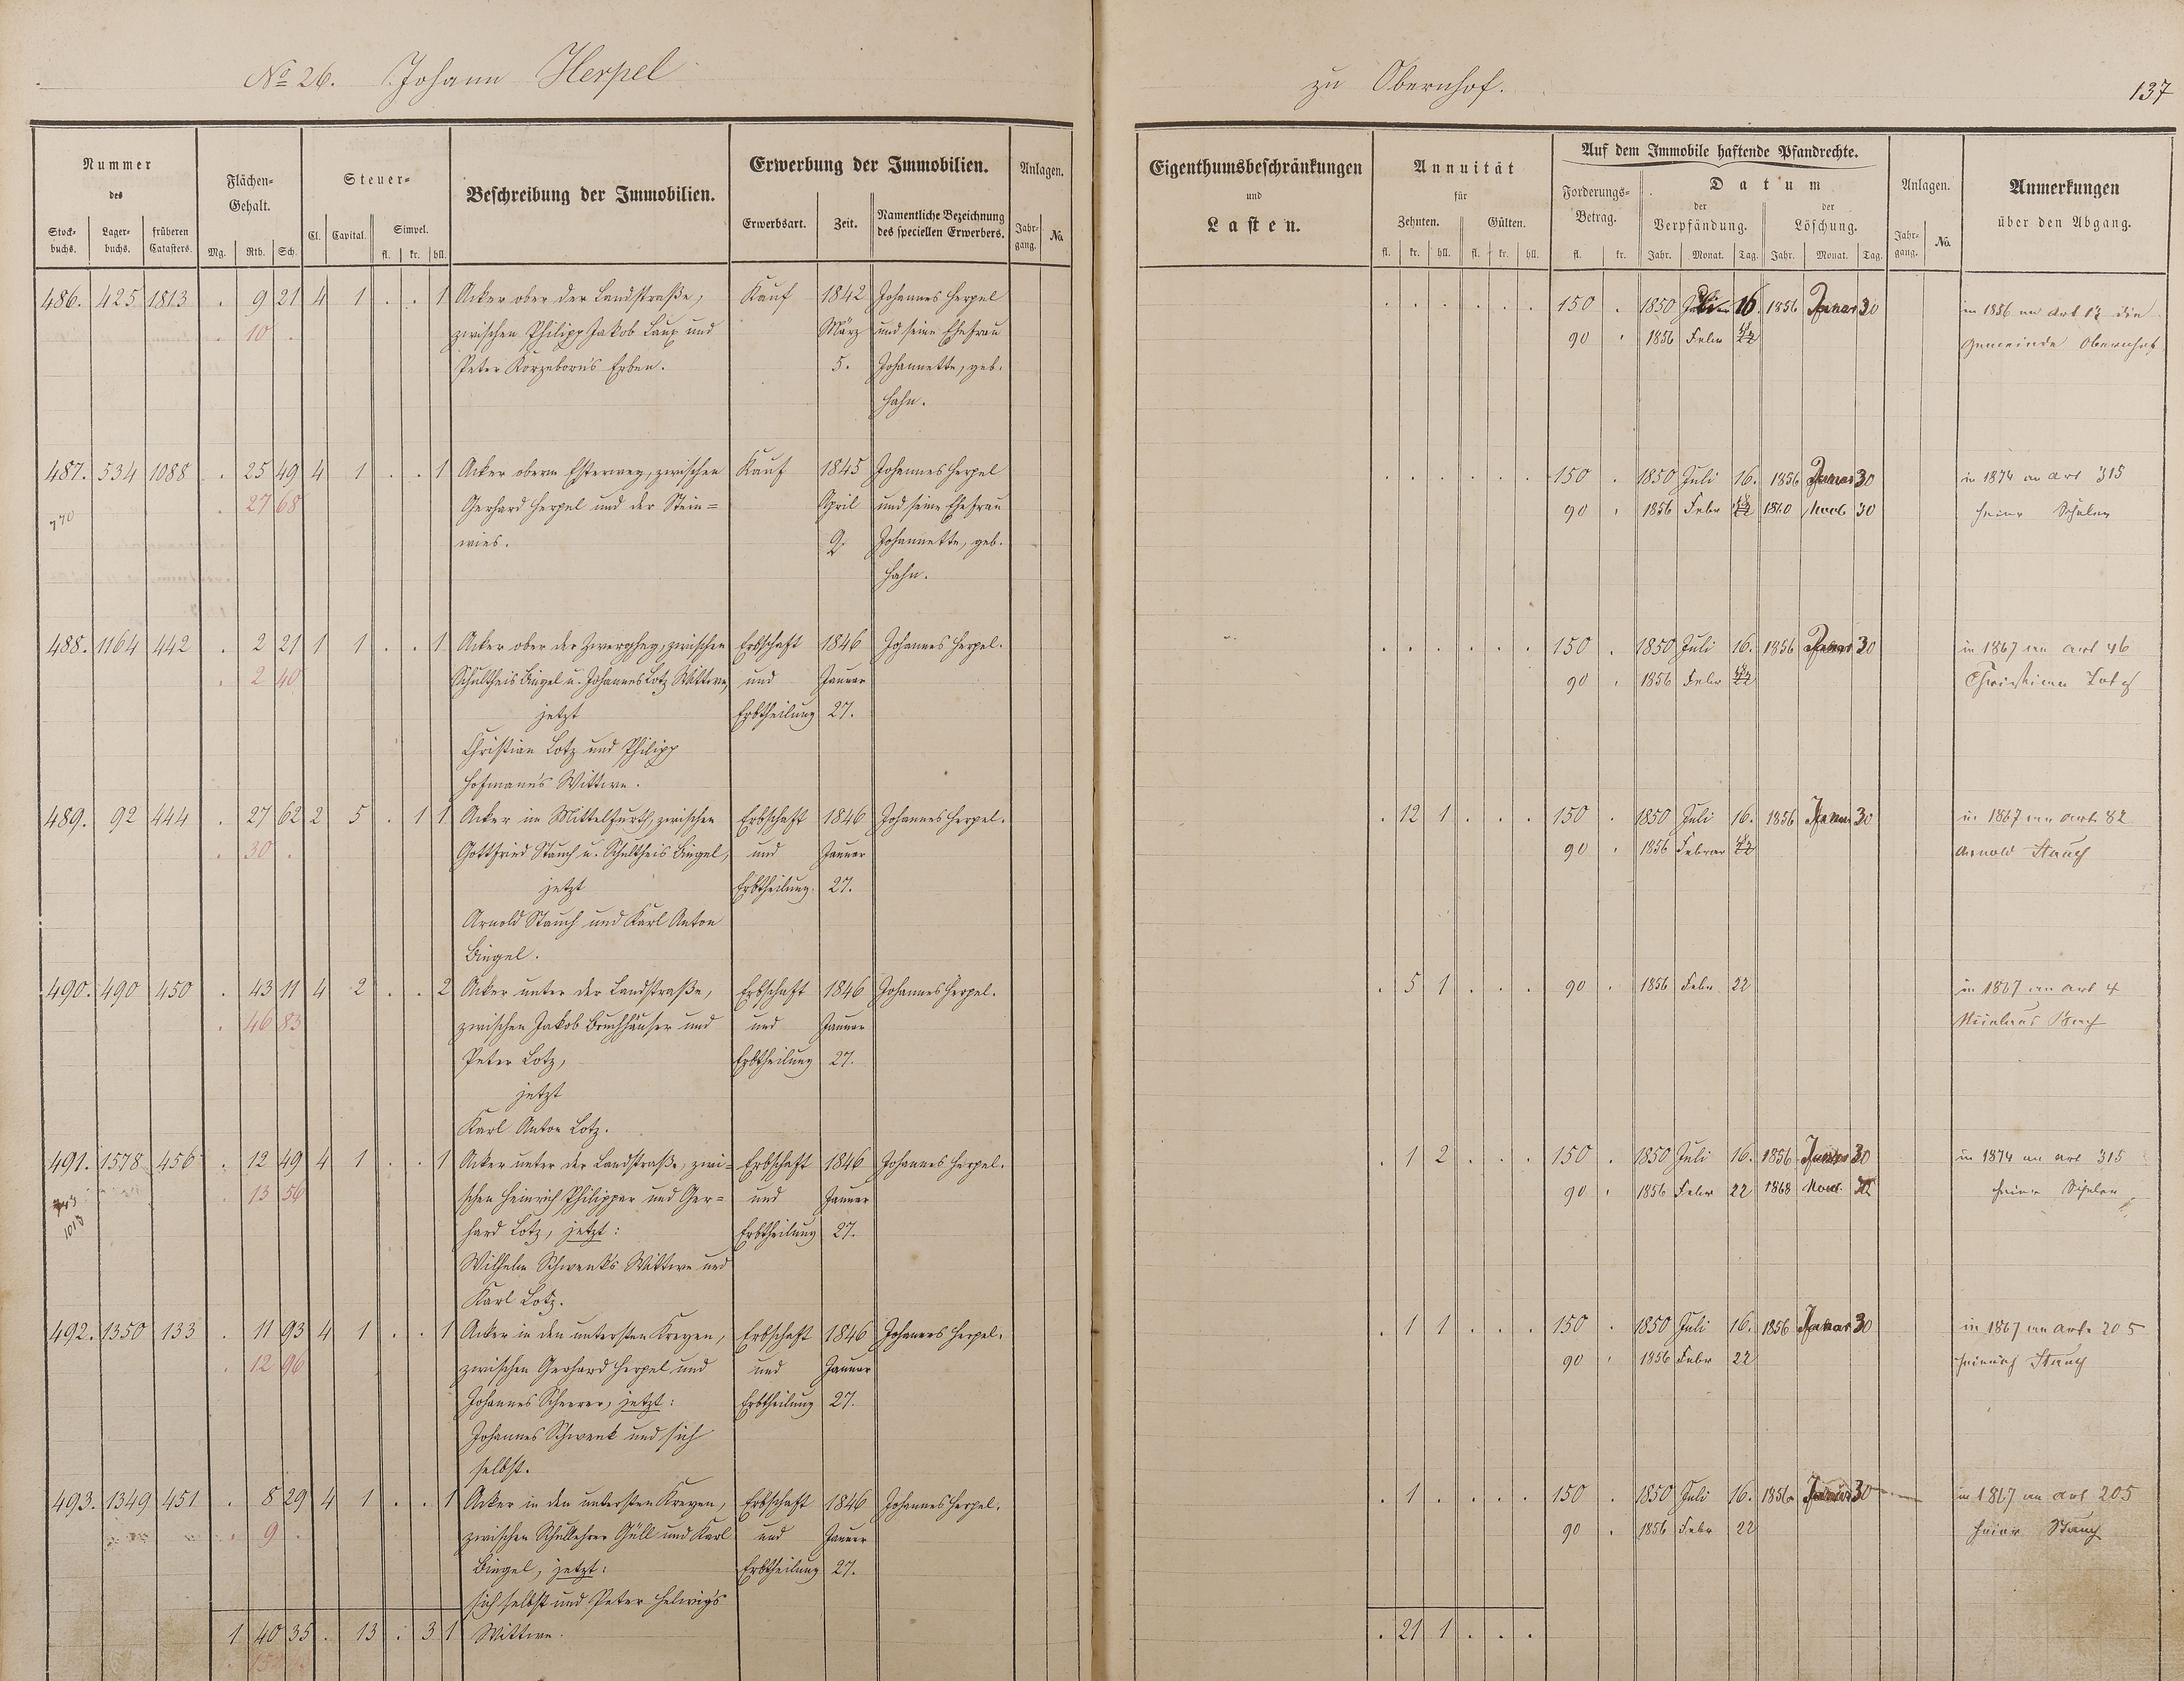 No 26. Johann Herpel
zu Obernhof.
137
Nummer des
Stockbuchs. Lagerbuchs. früheren Catasters.
Flächen-Gehalt.
Mg. Rth. Sch.
Steuer-
Cl. Capital. Simpel.
fl. kr. hll.
Beschreibung der Immobilien.
Erwerbung der Immobilien.
Erwerbsart. Zeit. Namentliche Bezeichnung des speciellen Erwerbers.
Anlagen.
Jahrgang. No.
Eigenthumsbeschränkungen und Lasten.
Annuität für
Zehnten. Gülten.
fl. kr. hll. fl. kr. hll.
Auf dem Immobile haftende Pfandrechte.
Forderungs-Betrag.
fl. kr.
Datum
der Verpfändung. der Löschung.
Jahr. Monat. Tag. Jahr. Monat. Tag.
Anlagen.
Jahrgang. No.
Anmerkungen über den Abgang.
486. 425 1813 . 9 21 4 1 . . 1 Acker ober der Landstraße, Kauf 1842 Johannes Herpel . . . . . . 150 . 1850 Juli 16. 1856 Januar 30 in 1856 an Art 12 die
. 10 . zwischen Philipp Jakob Laux und März und seine Ehefrau 90 . 1856 Febr 22 Gemeinde Obernhof
Peter Korzeborn's Erben. 5. Johannette, geb.
Hahn.
487. 534 1088 . 25 49 4 1 . . 1 Acker oberm Esterweg, zwischen Kauf 1845 Johannes Herpel . . . . . . 150 . 1850 Juli 16. 1856 Januar 30 in 1874 an Art 315
770 . 27 68 Gerhard Herpel und der Stein= April und seine Ehefrau 90 . 1856 Febr 22 1860 30
wies. 9. Johannette, geb.
Hahn.
488. 1164 442 . 2 21 1 1 . . 1 Acker ober der zwischen Erbschaft 1846 Johannes Herpel. . . . . . . 150 . 1850 Juli 16. 1856 Januar 30 in 1867 an Art 46
. 2 40 Schultheis Bingel u. Johannes Lotz Wittwe, und Januar 90 . 1856 Febr 22 Christian Lotz
jetzt Erbtheilung 27.
Christian Lotz und Philipp
Hofmann's Wittwe.
489. 92 444 . 27 62 2 5 . 1 1 Acker im Mittelfurth, zwischen Erbschaft 1846 Johannes Herpel. . 12 1 . . . 150 . 1850 Juli 16. 1856 Januar 30 in 1867 an Art 82
. 30 . Gottfried Stauch u. Schultheis Bingel, und Januar 90 . 1856 Februar 22 Arnold Stauch
jetzt Erbtheilung. 27.
Arnold Stauch und Karl Anton
Bingel.
490. 490 450 . 43 11 4 2 . . 2 Acker unter der Landstraße, Erbschaft 1846 Johannes Herpel. . 5 1 . . . 90 . 1856 Febr 22 in 1867 an Art 4
. 46 83 zwischen Jakob Bruchhäuser und und Januar
Peter Lotz, Erbtheilung 27.
jetzt
Karl Anton Lotz.
491. 1578 456 . 12 49 4 1 . . 1 Acker unter der Landstraße, zwi= Erbschaft 1846 Johannes Herpel. . 1 2 . . . 150 . 1850 Juli 16. 1856 Januar 30 in 1874 an Art 315
. 13 56 schen Heinrich Philippar und Ger= und Januar 90 . 1856 Febr 22 1868
1018 hard Lotz, jetzt: Erbtheilung 27.
Wilhelm Schwenk's Wittwe und
Karl Lotz.
492. 1350 133 . 11 93 4 1 . . 1 Acker in den untersten Kreyen, Erbschaft 1846 Johannes Herpel. . 1 1 . . . 150 . 1850 Juli 16. 1856 Januar 30 in 1867 an Art. 205
. 12 96 zwischen Gerhard Herpel und und Januar 90 . 1856 Febr 22 Heinrich Stauch
Johannes Scherer, jetzt: Erbtheilung 27.
Johannes Schwenk und sich
selbst.
493. 1349 451 . 8 29 4 1 . . 1 Acker in den untersten Kreyen, Erbschaft 1846 Johannes Herpel. . 1 . . . . 150 . 1850 Juli 16. 1856 Januar 30 in 1867 an Art 205
. 9 . zwischen Schullehrer Güll und Karl und Januar 90 . 1856 Febr 22 Heinr Stauch
Bingel, jetzt: Erbtheilung 27.
sich selbst und Peter Helwig's
1 40 35 . 13 . 3 1 Wittwe. . 21 1 . . .